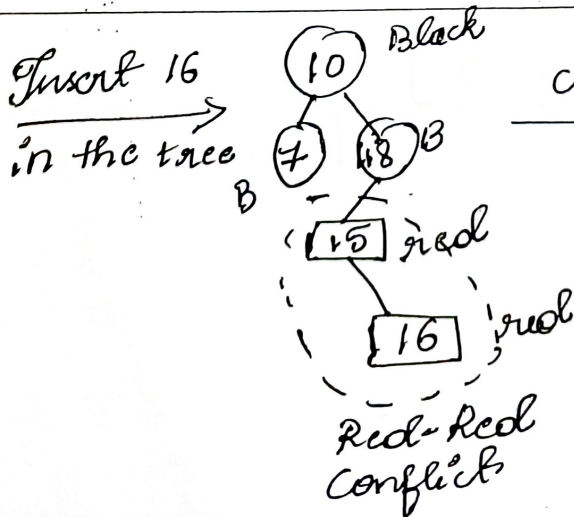 Insert 16
in the tree
10 Black
C
7 18 B
B
15 red
16 red
Red-Red
Conflicts